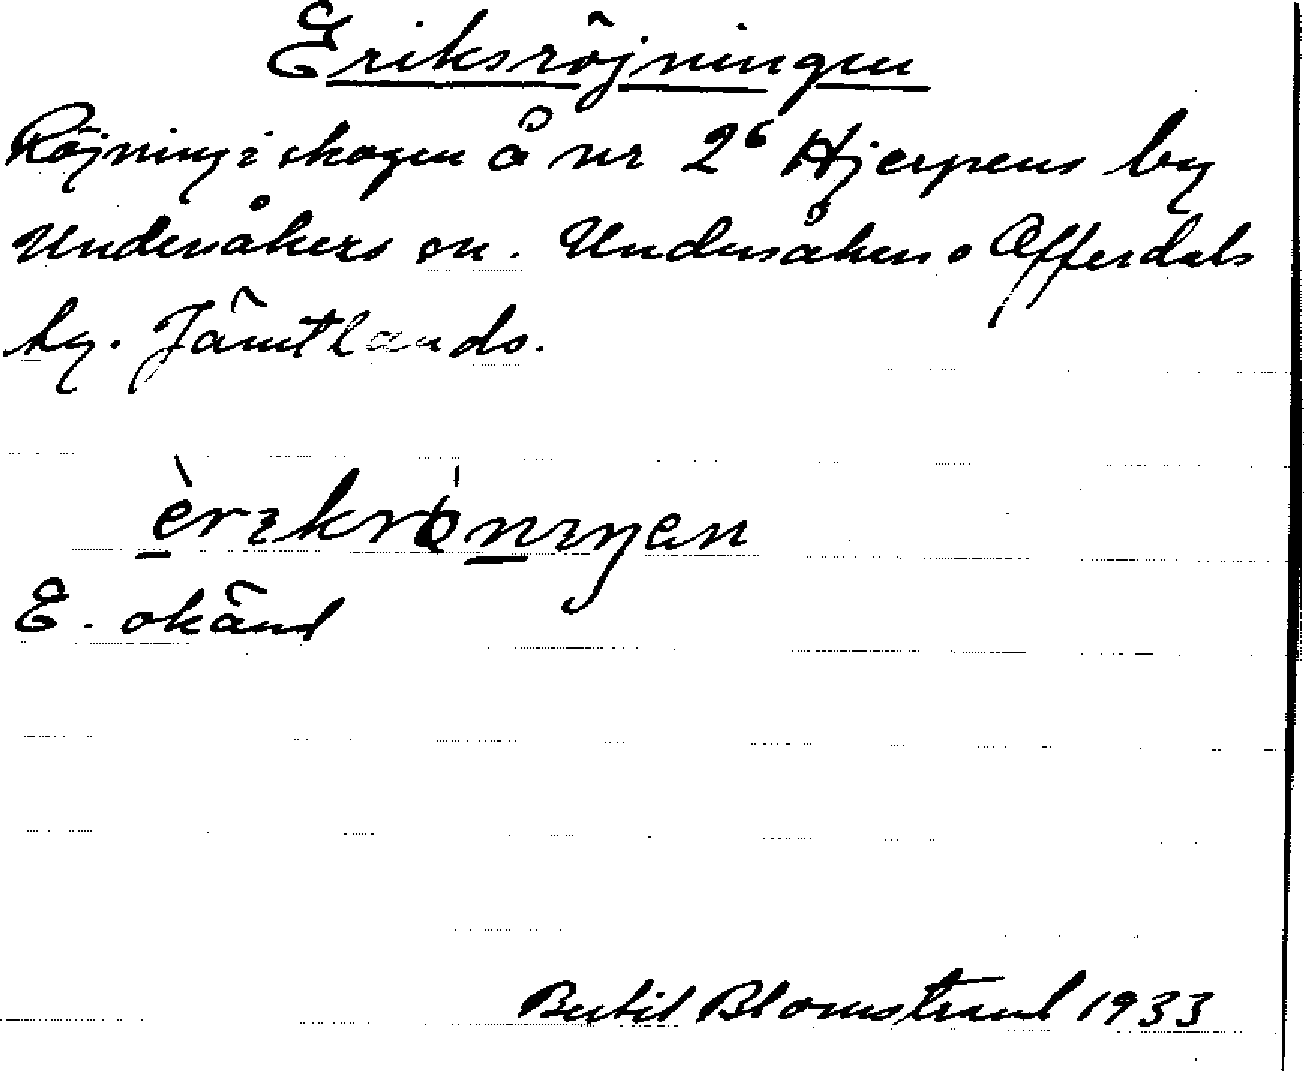 Eriksröjningen
Röjning i skogen å nr 2⁶ Hjerpens by
Undersåkers sn. Undersåkers o Offerdals
hg. Jämtlands.
E. okänd
Bertil Blomstrand 1933